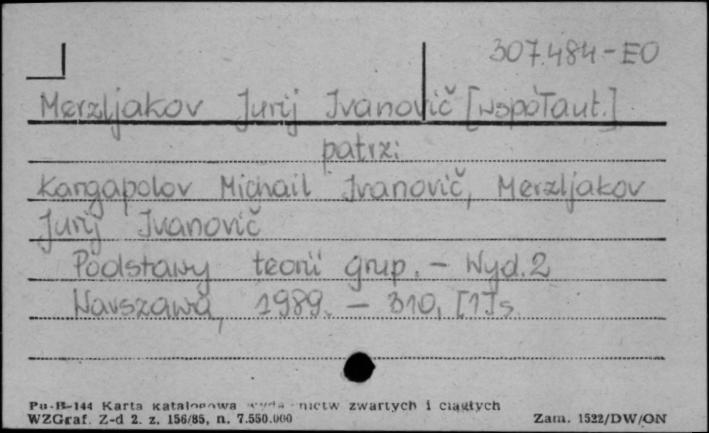 307.484-EO
Merzljakov Jurij Ivanovič [współaut.]
patrz:
Kargapolov Michail Ivanovič, Merzljakov
Jurij Ivanovič
Podstawy teorii grup. - Wyd. 2
Warszawa, 1989. - 310, [1] s.
Pu-B-144 Karta katalogowa wydawnictw zwartych i ciągłych
WZGraf. Z-d 2. z. 156/85, n. 7.550.000 Zam. 1522/DW/ON